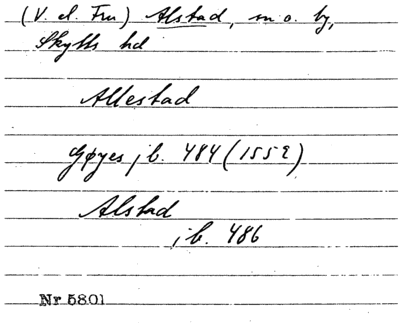 (V. el. Fru) Alstad, sn o. by,
Skytts hd
Allestad
Gøyes jb. 484 (1552)
Alstad
jb. 486
Nr 5801